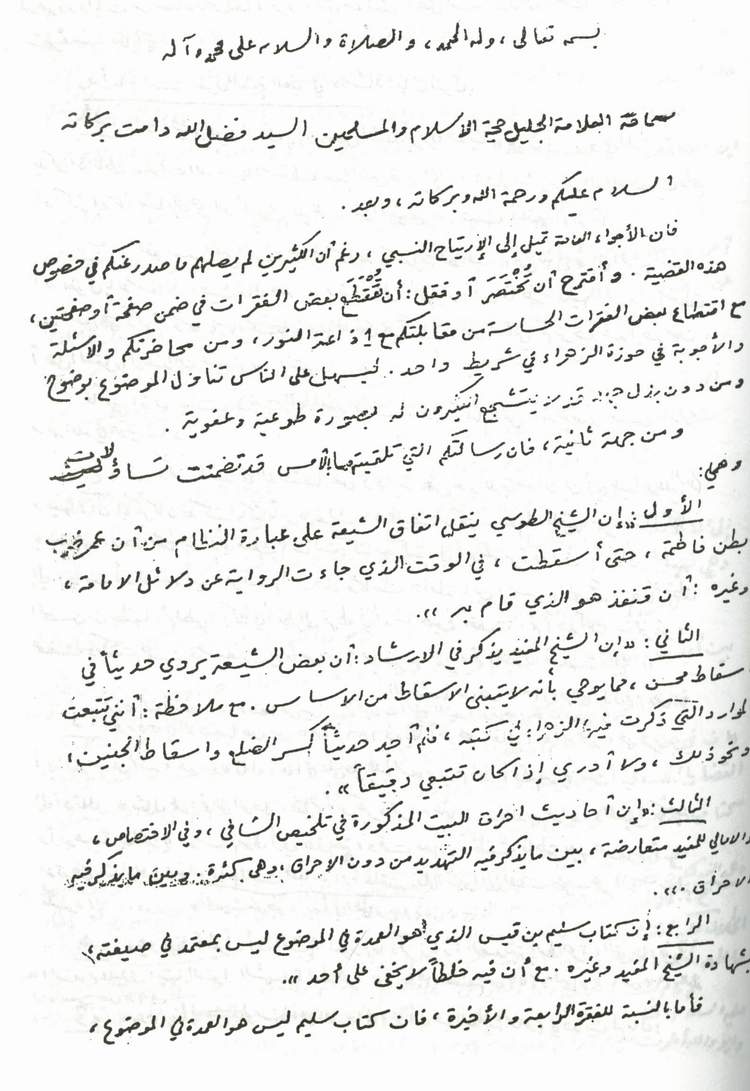 بسمه تعالى ، وله الحمد ، والصلاة والسلام على محمد وآله
سماحة العلامة الجليل حجة الإسلام والمسلمين السيد فضل الله دامت بركاته
السلام عليكم ورحمة الله وبركاته ، وبعد .
فان الأجواء العامة تميل إلى الإرتياح النسبي ، رغم أن الكثيرين لم يصلهم ما صدر عنكم في خصوص
هذه القضية . وأقترح أن تُخْتَصَر أو فقل : أن تُقْتَطَع بعض الفقرات في ضمن صفحة أو صفحتين ،
مع اقتطاع بعض الفقرات الحساسة من مقابلتكم مع إذاعة النور ، ومن محاضرتكم والأسئلة
والأجوبة في حوزة الزهراء في شريط واحد . ليسهل على الناس تناول الموضوع بوضوح
ومن دون بذل جهد قد لا يتشجع الكثيرون له بصورة طوعية وعفوية .
ومن جهة ثانية ، فان رسالتكم التي تلقيتها بالأمس قد تضمنت تساؤلات
وهي :
الأول : «إن الشيخ الطوسي ينقل اتفاق الشيعة على عبارة النظام من أن عمر ضرب
بطن فاطمة ، حتى أسقطت ، في الوقت الذي جاءت الرواية عن دلائل الامامة ،
وغيره : أن قنفذ هو الذي قام به » .
الثاني : «ان الشيخ المفيد يذكر في الارشاد : أن بعض الشيعة يروي حديثاً في
إسقاط محسن ، مما يوحي بأنه لا يتبنى الاسقاط من الاساس . مع ملاحظة : أنني تتبعت
الموارد التي ذكرت فيها الزهراء في كتبه ، فلم أجد حديثاً كسر الضلع واسقاط الجنين ،
ونحو ذلك ، ولا أدري إذا كان تتبعي دقيقاً » .
الثالث : «إن أحاديث احراق البيت المذكورة في تلخيص الشافي ، وفي الاختصاص ،
والامالي للمفيد متعارضة ، بين ما يذكر فيه التهديد من دون الاحراق ، وهي كثيرة . وبين ما يذكر فيه
الاحراق .» .
الرابع : أن كتاب سليم بن قيس الذي هو العمدة في الموضوع ليس بمعتمد في صيغته ،
بشهادة الشيخ المفيد وغيره . مع أن فيه خلطاً لا يخفى على أحد » .
فأما بالنسبة للفقرة الرابعة والأخيرة ، فان كتاب سليم ليس هو العمدة في الموضوع ،